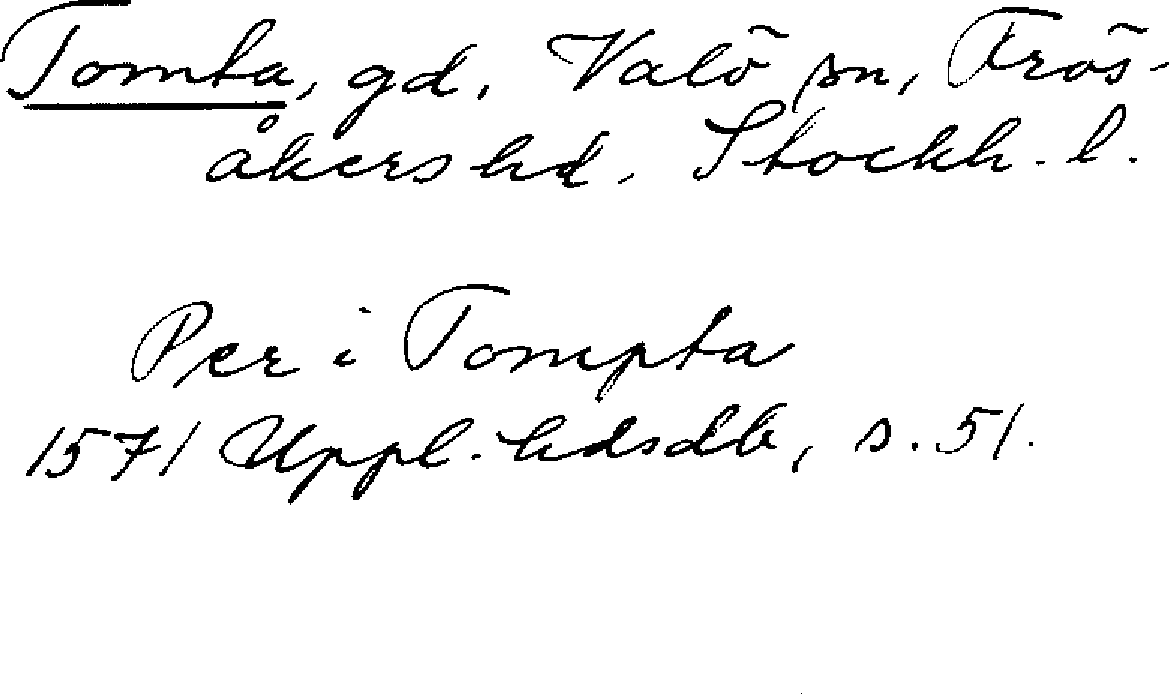 Tomta, gd, Valö sn, Frös-
åkers hd, Stockh. l.
Per i Tompta
1571 Uppl. hdsdb, s. 51.